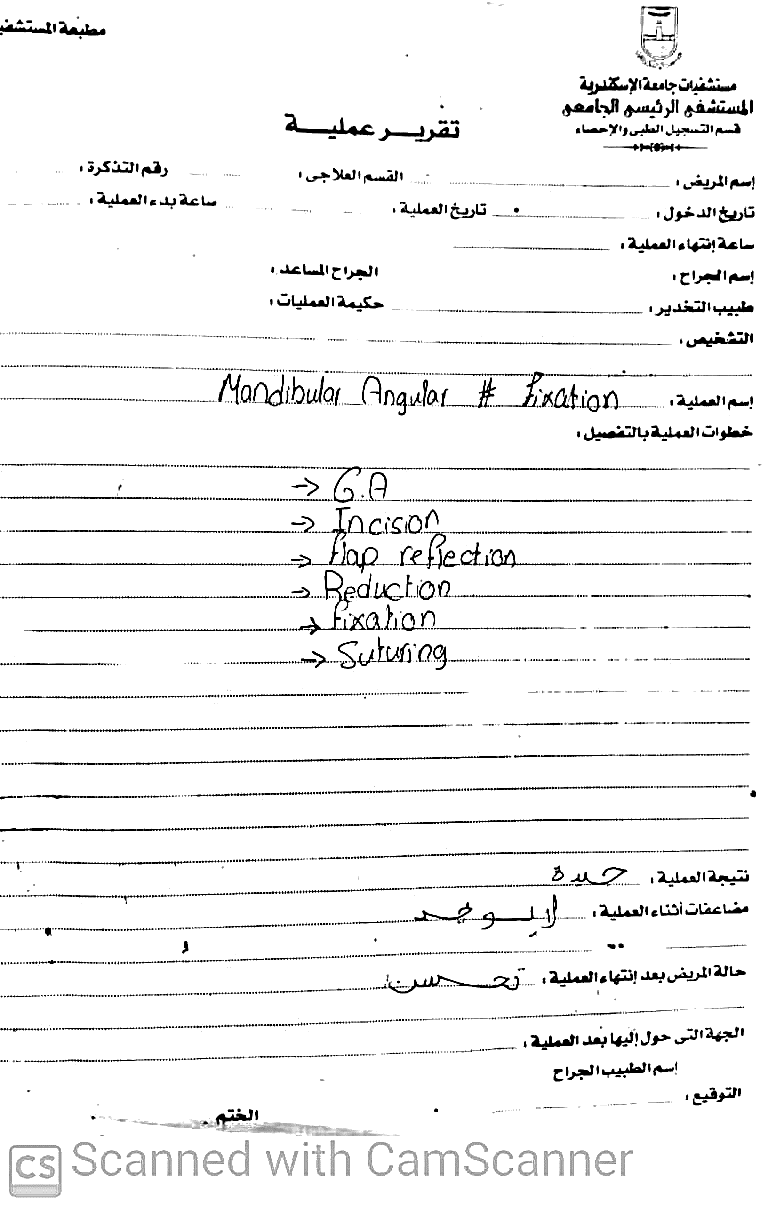 مطبعة المستشفي
مستشفيات جامعة الإسكندرية
المستشفى الرئيسى الجامعى
قسم التسجيل الطبى والإحصاء
تقرير عملية
إسم المريض : القسم العلاجى : رقم التذكرة :
تاريخ الدخول : تاريخ العملية : ساعة بدء العملية :
ساعة إنتهاء العملية :
إسم الجراح : الجراح المساعد :
طبيب التخدير : حكيمة العمليات :
التشخيص :
إسم العملية : Mandibular Angular # Fixation
خطوات العملية بالتفصيل :
→ G.A
→ Incision
→ flap reflection
→ Reduction
→ fixation
→ Suturing
نتيجة العملية : جيدة
مضاعفات أثناء العملية : لا يوجد
حالة المريض بعد إنتهاء العملية : تحسن
الجهة التى حول إليها بعد العملية :
إسم الطبيب الجراح
التوقيع :
الختم
CS Scanned with CamScanner